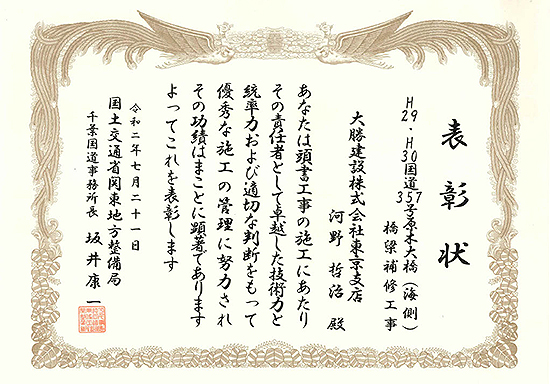 表彰状
H29・H30国道357号原木大橋(海側)
橋梁補修工事
大勝建設株式会社東京支店
河野 哲治 殿
あなたは頭書工事の施工にあたり
その責任者として卓越した技術力と
統率力および適切な判断をもって
優秀な施工の管理に努力され
その功績はまことに顕著であります
よってこれを表彰します
令和二年七月二十一日
国土交通省関東地方整備局
千葉国道事務所長 坂井康一